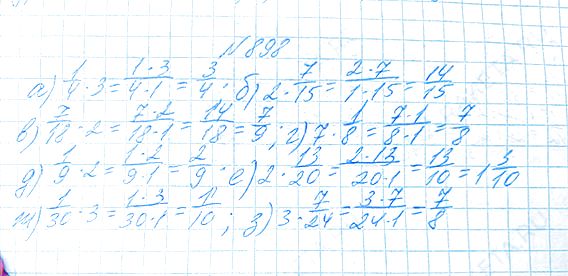 №898
а) 1/4 · 3 = 1·3/4·1 = 3/4 ; б) 2 · 7/15 = 2·7/1·15 = 14/15
в) 7/18 · 2 = 7·2/18·1 = 14/18 = 7/9 ; г) 7 · 1/8 = 7·1/8·1 = 7/8
д) 1/9 · 2 = 1·2/9·1 = 2/9 · е) 2 · 13/20 = 2·13/20·1 = 13/10 = 1 3/10
ж) 1/30 · 3 = 1·3/30·1 = 1/10 ; з) 3 · 7/24 = 3·7/24·1 = 7/8